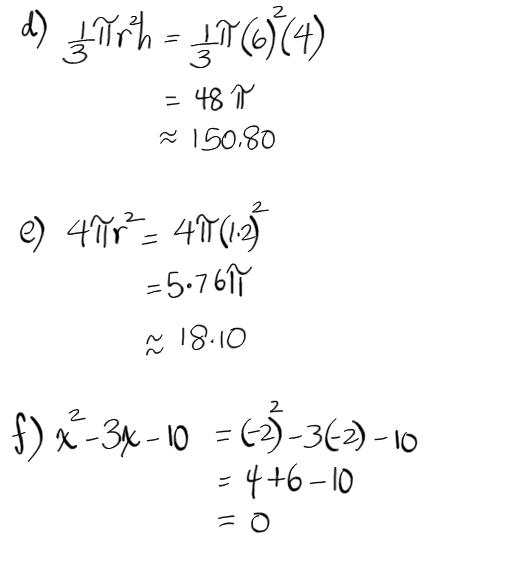 d) 1/3 πr²h = 1/3 π(6)²(4)
= 48 π
≈ 150.80
e) 4πr² = 4π(1.2)²
= 5.76π
≈ 18.10
f) x² - 3x - 10 = (-2)² - 3(-2) - 10
= 4 + 6 - 10
= 0